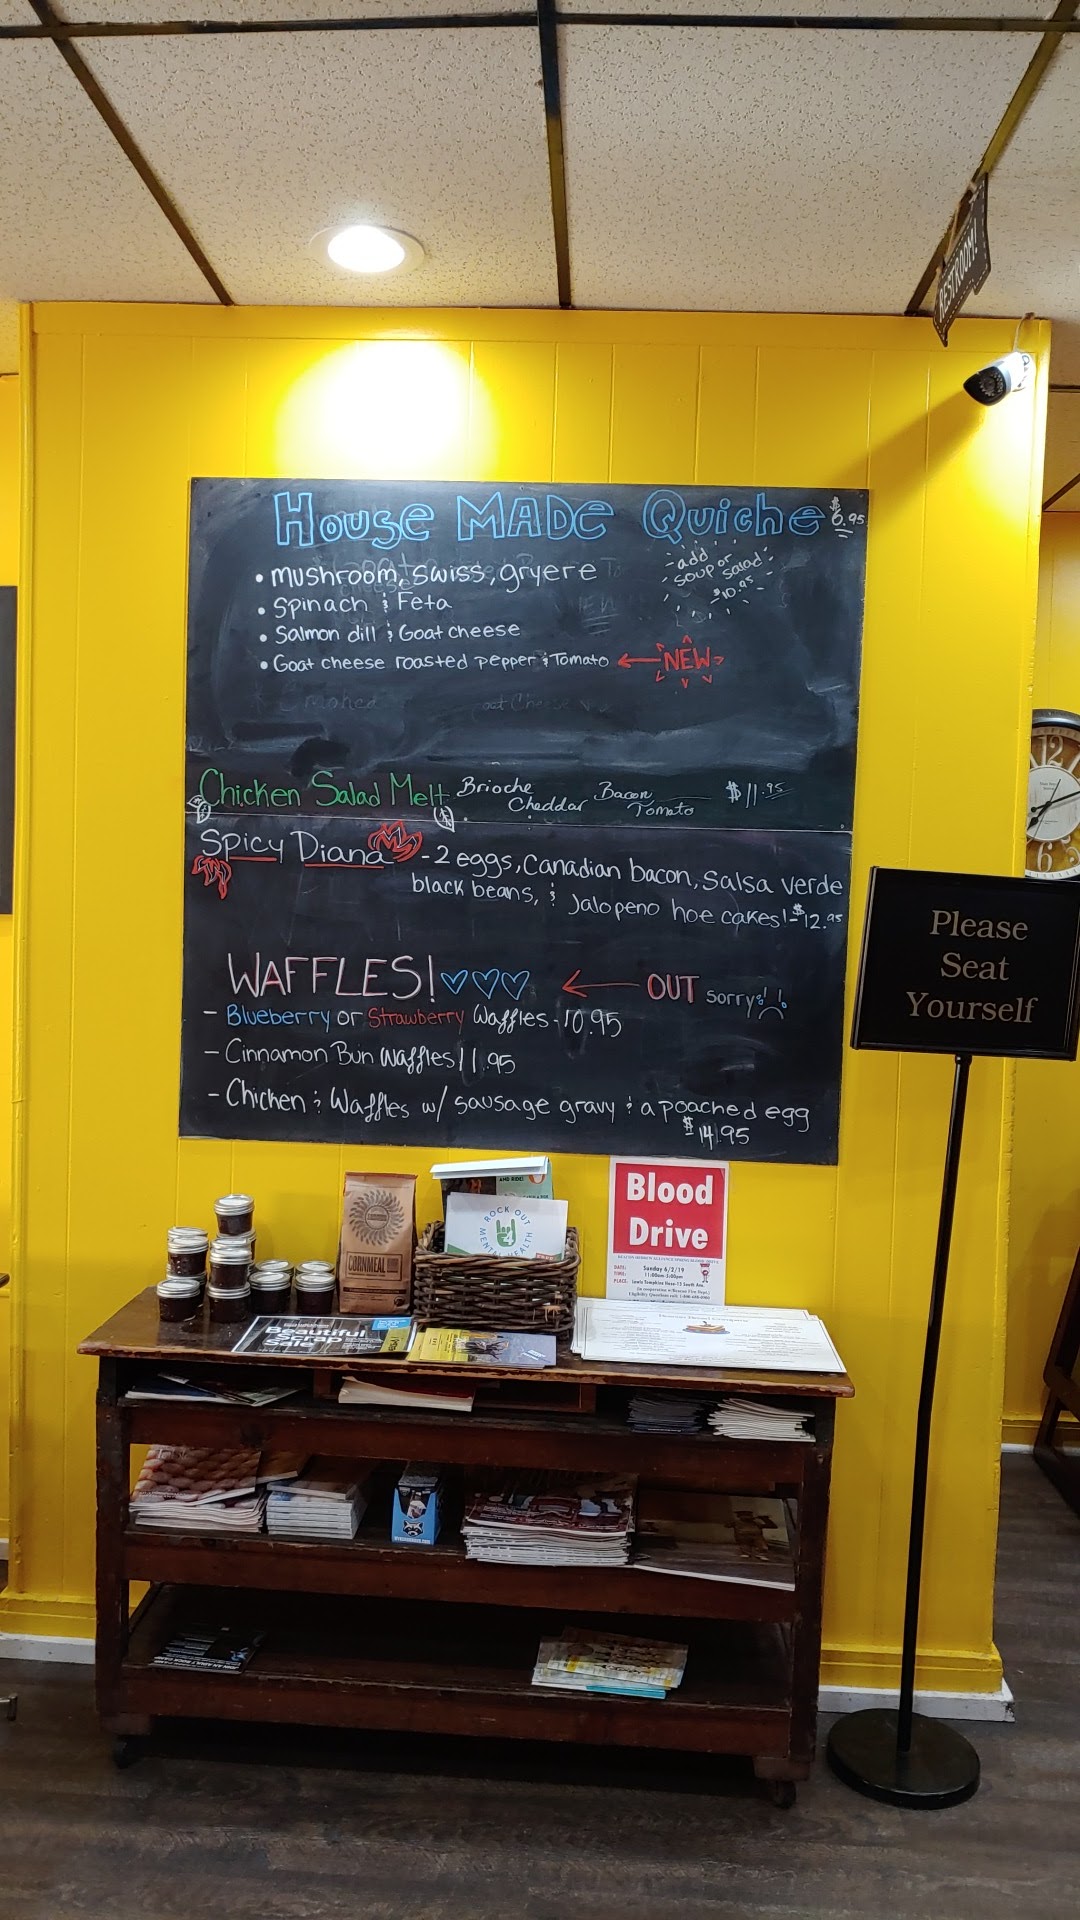 RESTROOM!
House MADE Quiche $6.95
• mushroom, swiss, gryere
add soup or salad $10.95
• Spinach & Feta
• Salmon dill & Goat cheese
• Goat cheese roasted pepper & Tomato ← NEW
Chicken Salad Melt Brioche Cheddar Bacon Tomato $11.95
Spicy Diana - 2 eggs, Canadian bacon, Salsa verde
black beans, & Jalopeno hoe cakes! - $12.95
WAFFLES! ♡♡♡ ← OUT sorry
- Blueberry or Strawberry Waffles - 10.95
- Cinnamon Bun Waffles 11.95
- Chicken & Waffles w/ sausage gravy & a poached egg
$14.95
Please
Seat
Yourself
12
6
AND RIDES
ROCK OUT
4
MENTAL HEALTH
CORNMEAL
Blood
Drive
DATE: Sunday 6/2/19
TIME: 11:00am-5:00pm
PLACE: Lewis Tompkins Hose-13 South Ave.
Beautiful
Scrap
Sale